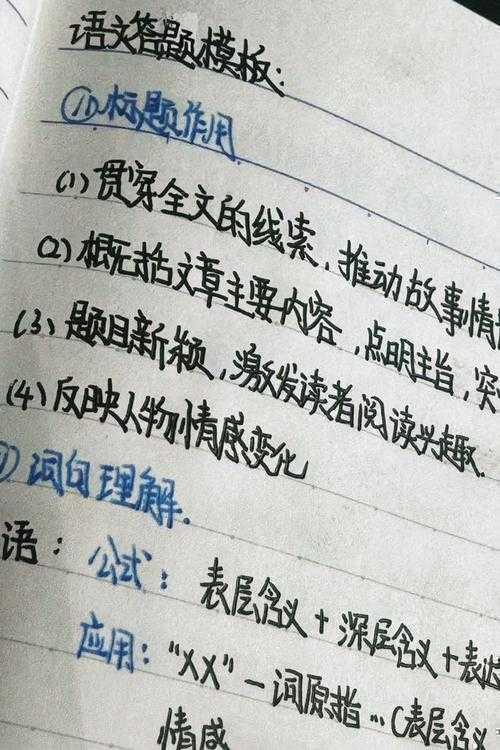 语文答题模板:
①标题作用
(1)贯穿全文的线索,推动故事情
(2)概括文章主要内容,点明主旨,突
(3)题目新颖,激发读者阅读兴趣.
(4)反映人物情感变化
词句理解.
语: 公式: 表层含义+深层含义+表
应用:“XX”一词原指…(表层含义
情感